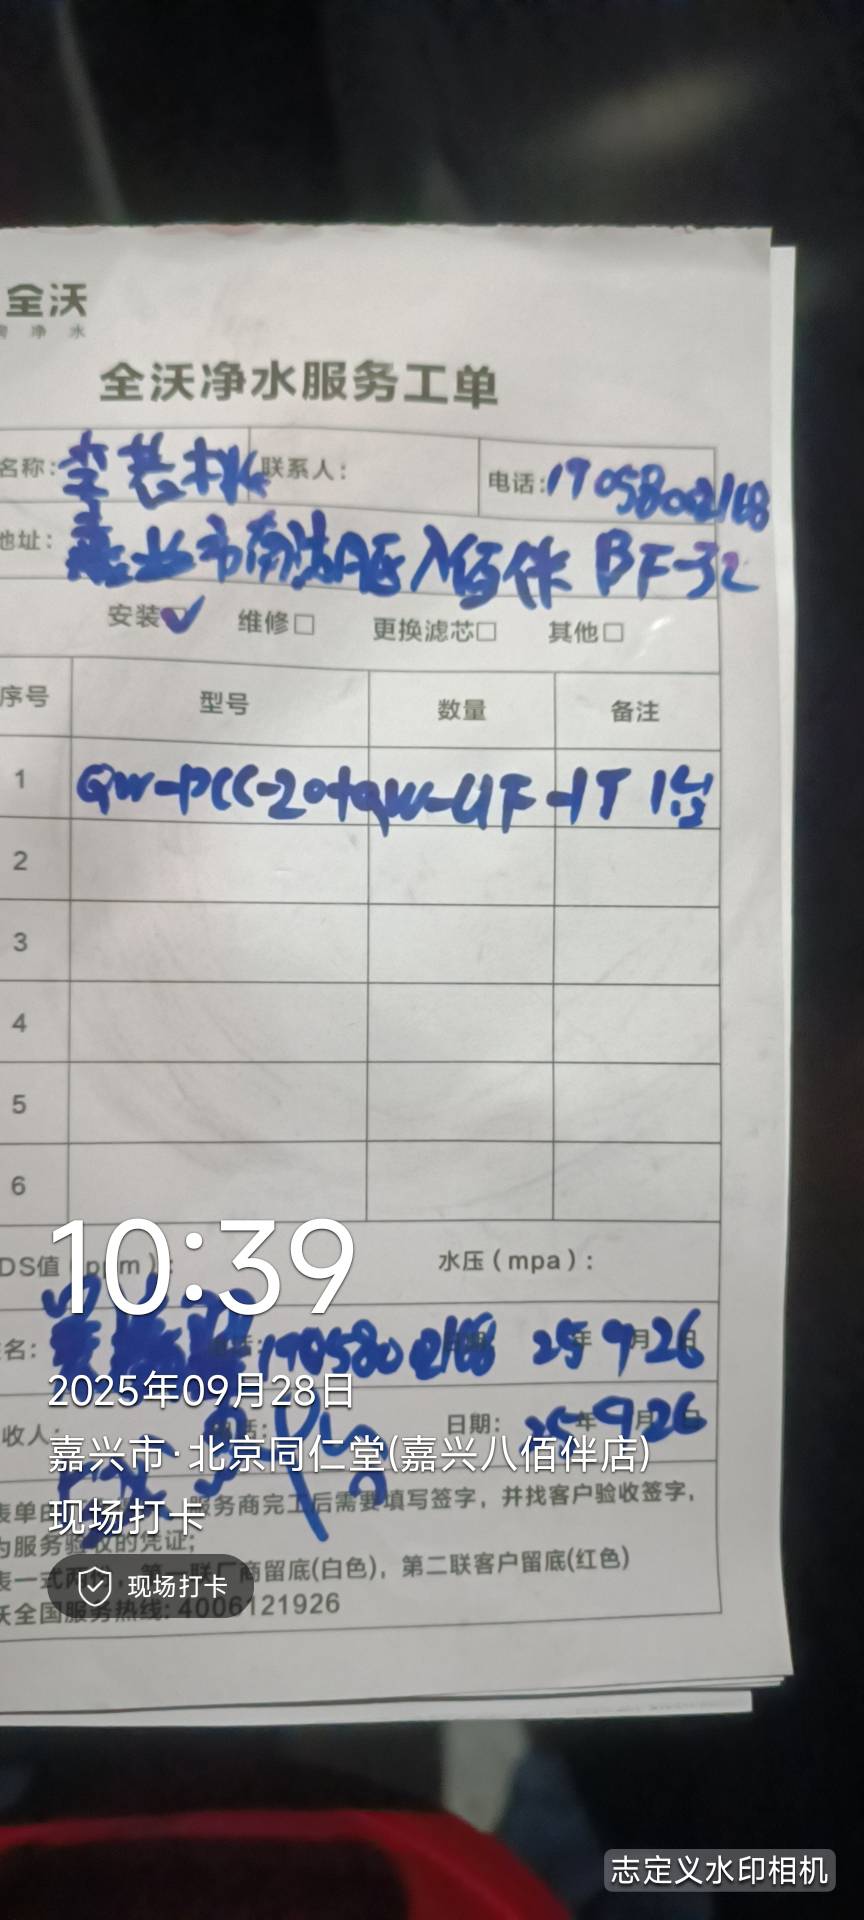 全沃
净水
全沃净水服务工单
名称: 联系人: 电话:19058002168
地址: 嘉兴市南湖区八佰伴 BF-32
安装☑ 维修□ 更换滤芯□ 其他□
序号 型号 数量 备注
1 QW-PCC-20+QW-UF-1T 1台
2
3
4
5
6
DS值(ppm): 水压(mpa):
10:39
名: 25年9月26日
2025年09月28日
收人: 日期: 25年9月26日
嘉兴市·北京同仁堂(嘉兴八佰伴店)
服务商完工后需要填写签字，并找客户验收签字，
现场打卡
为服务验收的凭证;
表一式两份，第一联厂商留底(白色)，第二联客户留底(红色)
现场打卡
沃全国服务热线:4006121926
志定义水印相机